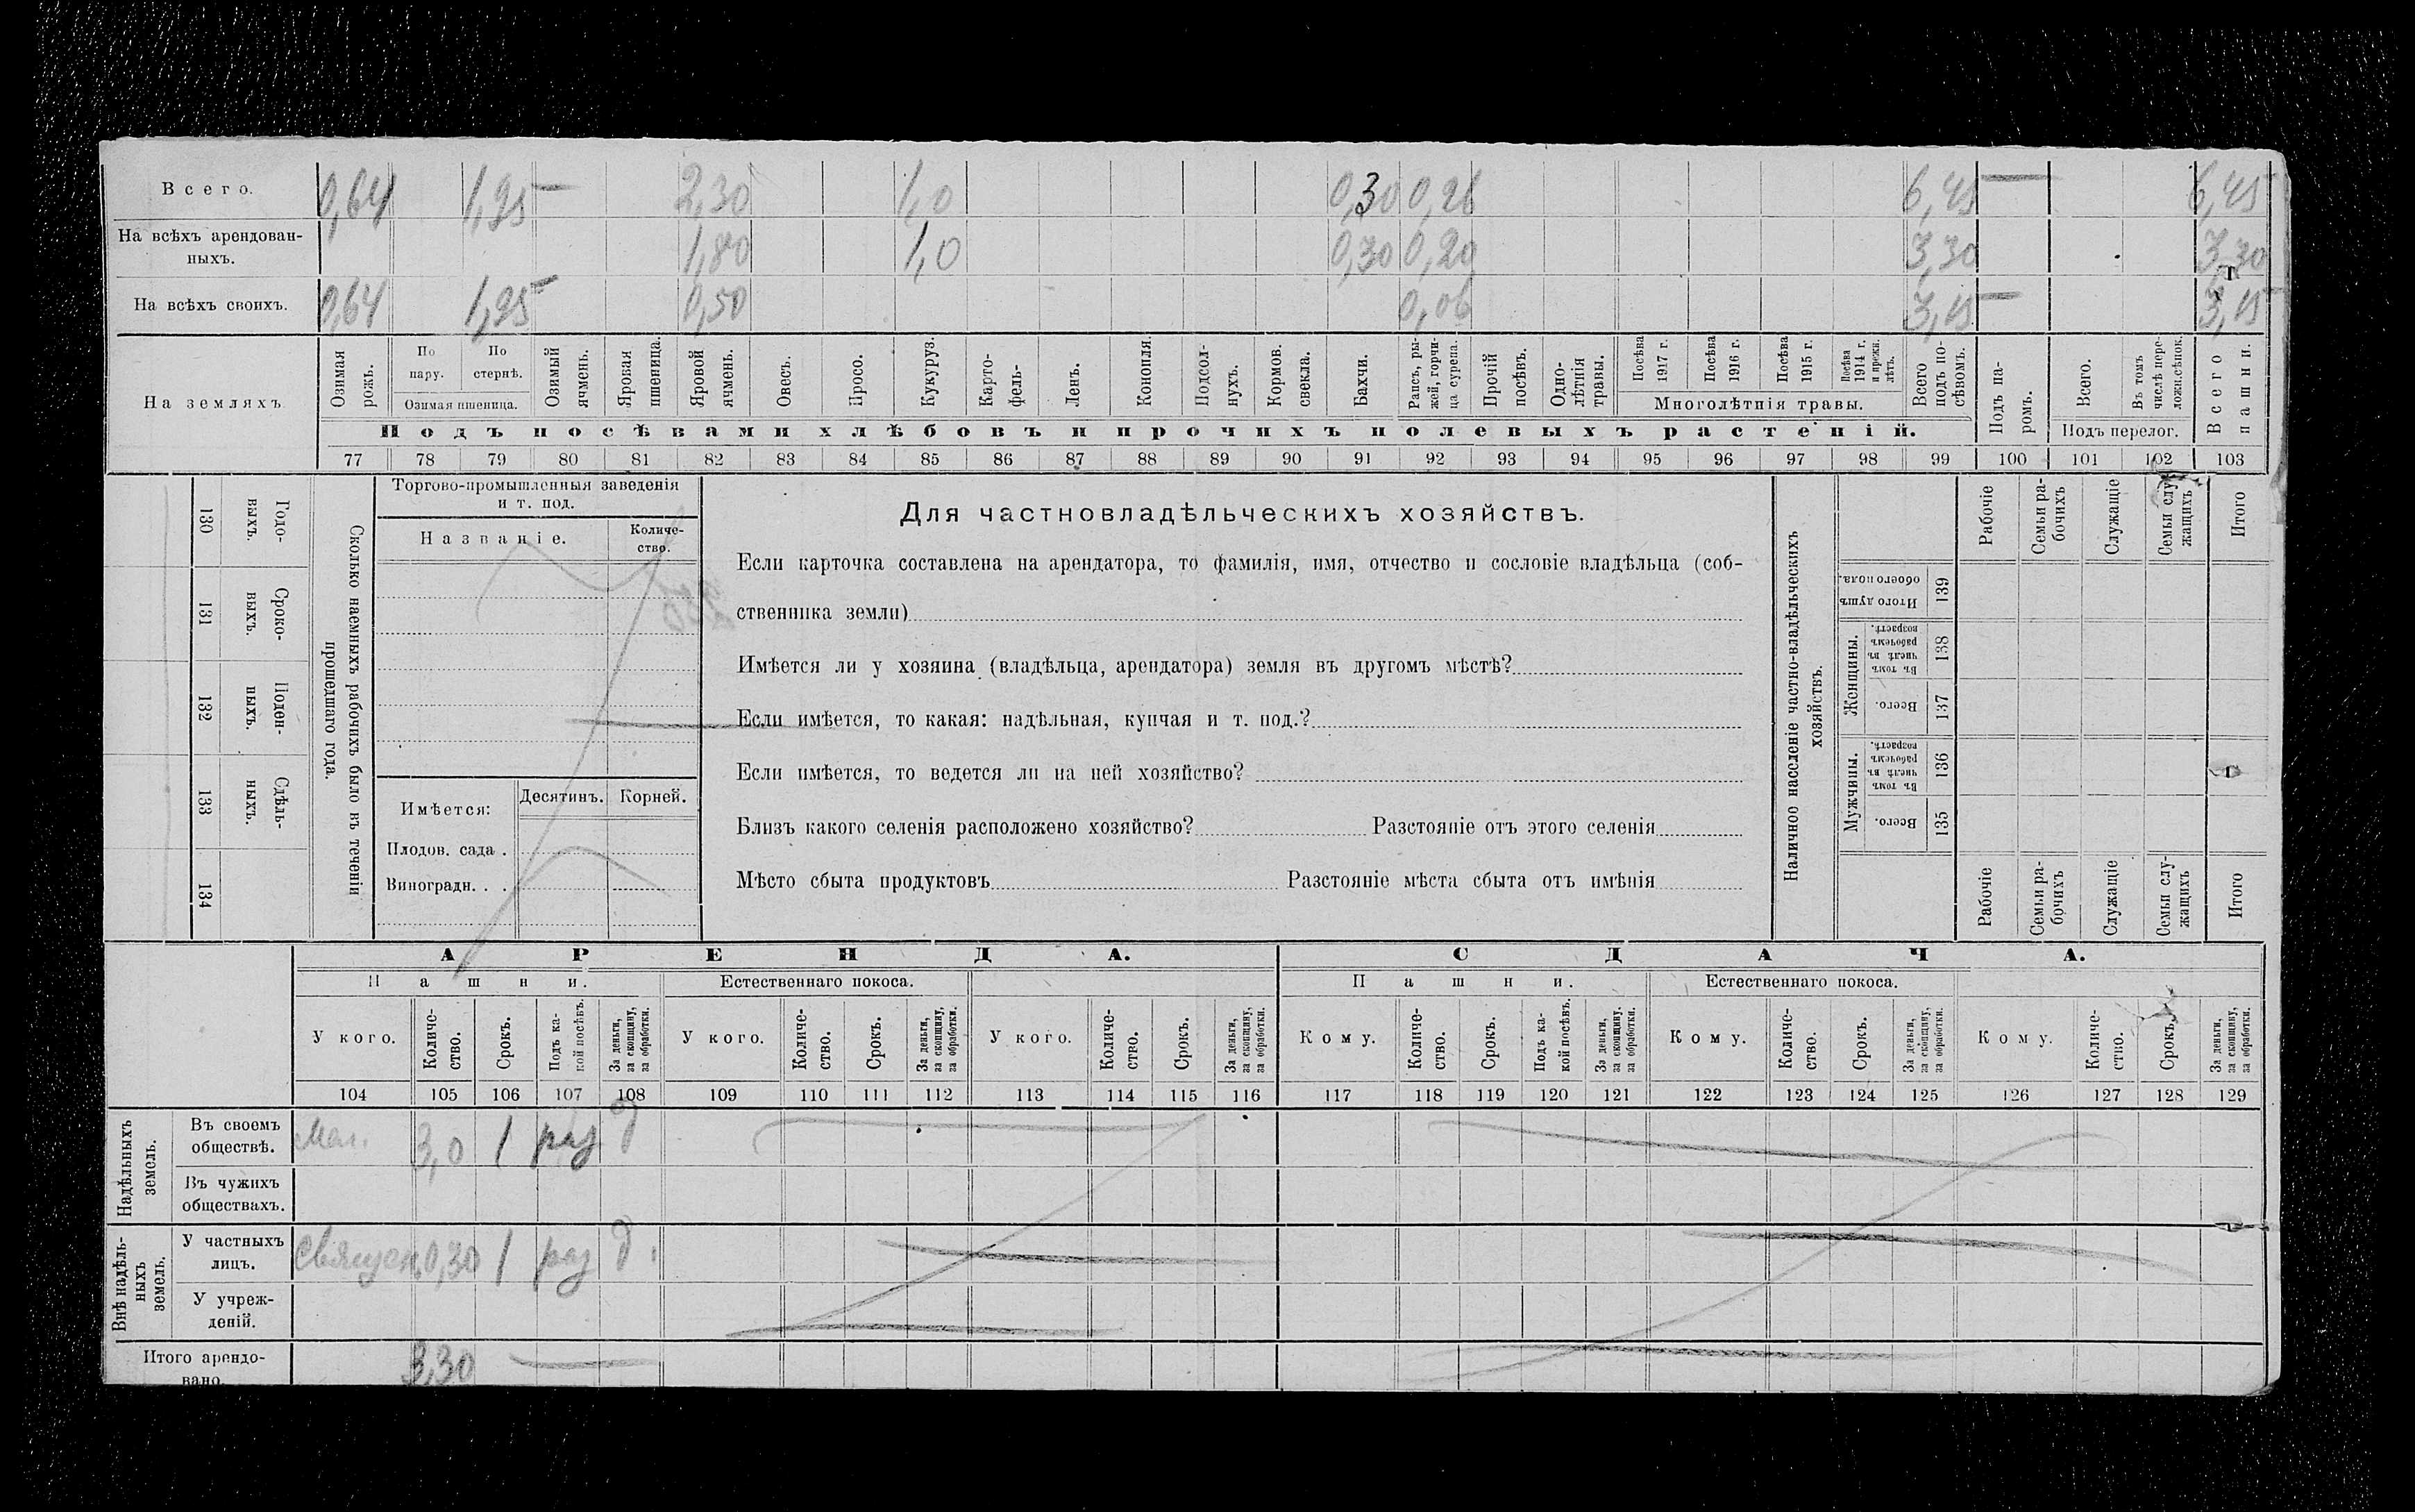 Всего. 0,64 1,95 2,30 1,0 0,30 0,26 6,45 6,45
На всѣхъ арендован-
ныхъ. 1,80 1,0 0,30 0,20 3,30 3,30
На всѣхъ своихъ. 0,64 1,95 0,50 0,06 3,15 3,15
На земляхъ.
Озимая рожь.
По пару.
По стернѣ.
Озимая пшеница.
Озимый ячмень.
Яровая пшеница.
Яровой ячмень.
Овесъ.
Просо.
Кукуруз.
Карто-
фель-
Ленъ.
Конопля.
Подсол-
нухъ.
Кормов.
свекла.
Бахчи.
Рапсъ, ры-
жей, горчи-
ца сурепа.
Прочій
посѣвъ.
Одно-
лѣтнія
травы.
Посѣва
1917 г.
Посѣва
1916 г.
Посѣва
1915 г.
Посѣва
1914 г.
и прежн.
лѣтъ.
Многолѣтнія травы.
Всего
подъ по-
сѣвомъ.
Подъ посѣвами хлѣбовъ и прочихъ полевыхъ растеній.
Подъ па-
ромъ.
Всего.
Въ томъ
числѣ пере-
ложн.сѣнок.
Подъ перелог.
Всего
пашни.
77 78 79 80 81 82 83 84 85 86 87 88 89 90 91 92 93 94 95 96 97 98 99 100 101 102 103
130
Годо-
выхъ.
131
Сроко-
выхъ.
132
Поден-
ныхъ.
133
Сдѣль-
ныхъ.
134
Сколько наемныхъ рабочихъ было въ теченіи
прошедшаго года.
Торгово-промышленныя заведенія
и т. под.
Названіе.
Количе-
ство.
Имѣется:
Десятинъ. Корней.
Плодов. сада .
Виноградн. . .
Для частновладѣльческихъ хозяйствъ.
Если карточка составлена на арендатора, то фамилія, имя, отчество и сословіе владѣльца (соб-
ственника земли)
Имѣется ли у хозяина (владѣльца, арендатора) земля въ другомъ мѣстѣ?
Если имѣется, то какая: надѣльная, купчая и т. под.?
Если имѣется, то ведется ли на ней хозяйство?
Близъ какого селенія расположено хозяйство? Разстояніе отъ этого селенія
Мѣсто сбыта продуктовъ Разстояніе мѣста сбыта отъ имѣнія
Наличное населеніе частно-владѣльческихъ
хозяйствъ.
Рабочіе
Семьи ра-
бочихъ
Служащіе
Семьи слу-
жащихъ
Итого
Итого душъ
обоего пола.
139
Женщины.
Въ томъ
числѣ въ
рабочемъ
возрастѣ.
138
Всего.
137
Мужчины.
Въ томъ
числѣ въ
рабочемъ
возрастѣ.
136
Всего.
135
Рабочіе
Семьи ра-
бочихъ
Служащіе
Семьи слу-
жащихъ
Итого
АРЕНДА. СДАЧА.
Пашни. Естественнаго покоса. Пашни. Естественнаго покоса.
У кого.
Количе-
ство.
Срокъ.
Подъ ка-
кой посѣвъ.
За деньги,
за скопщину,
за обработки.
У кого.
Количе-
ство.
Срокъ.
За деньги,
за скопщину,
за обработки.
У кого.
Количе-
ство.
Срокъ.
За деньги,
за скопщину,
за обработки.
Кому.
Количе-
ство.
Срокъ.
Подъ ка-
кой посѣвъ.
За деньги,
за скопщину,
за обработки.
Кому.
Количе-
ство.
Срокъ.
За деньги,
за скопщину,
за обработки.
Кому.
Количе-
ство.
Срокъ.
За деньги,
за скопщину,
за обработки.
104 105 106 107 108 109 110 111 112 113 114 115 116 117 118 119 120 121 122 123 124 125 126 127 128 129
Надѣльныхъ
земель.
Въ своемъ
обществѣ. 3,0 1 раз д
Въ чужихъ
обществахъ.
Внѣ надѣль-
ныхъ
земель.
У частныхъ
лицъ. Священ. 0,30 1 раз д.
У учреж-
деній.
Итого арендо-
вано. 3,30